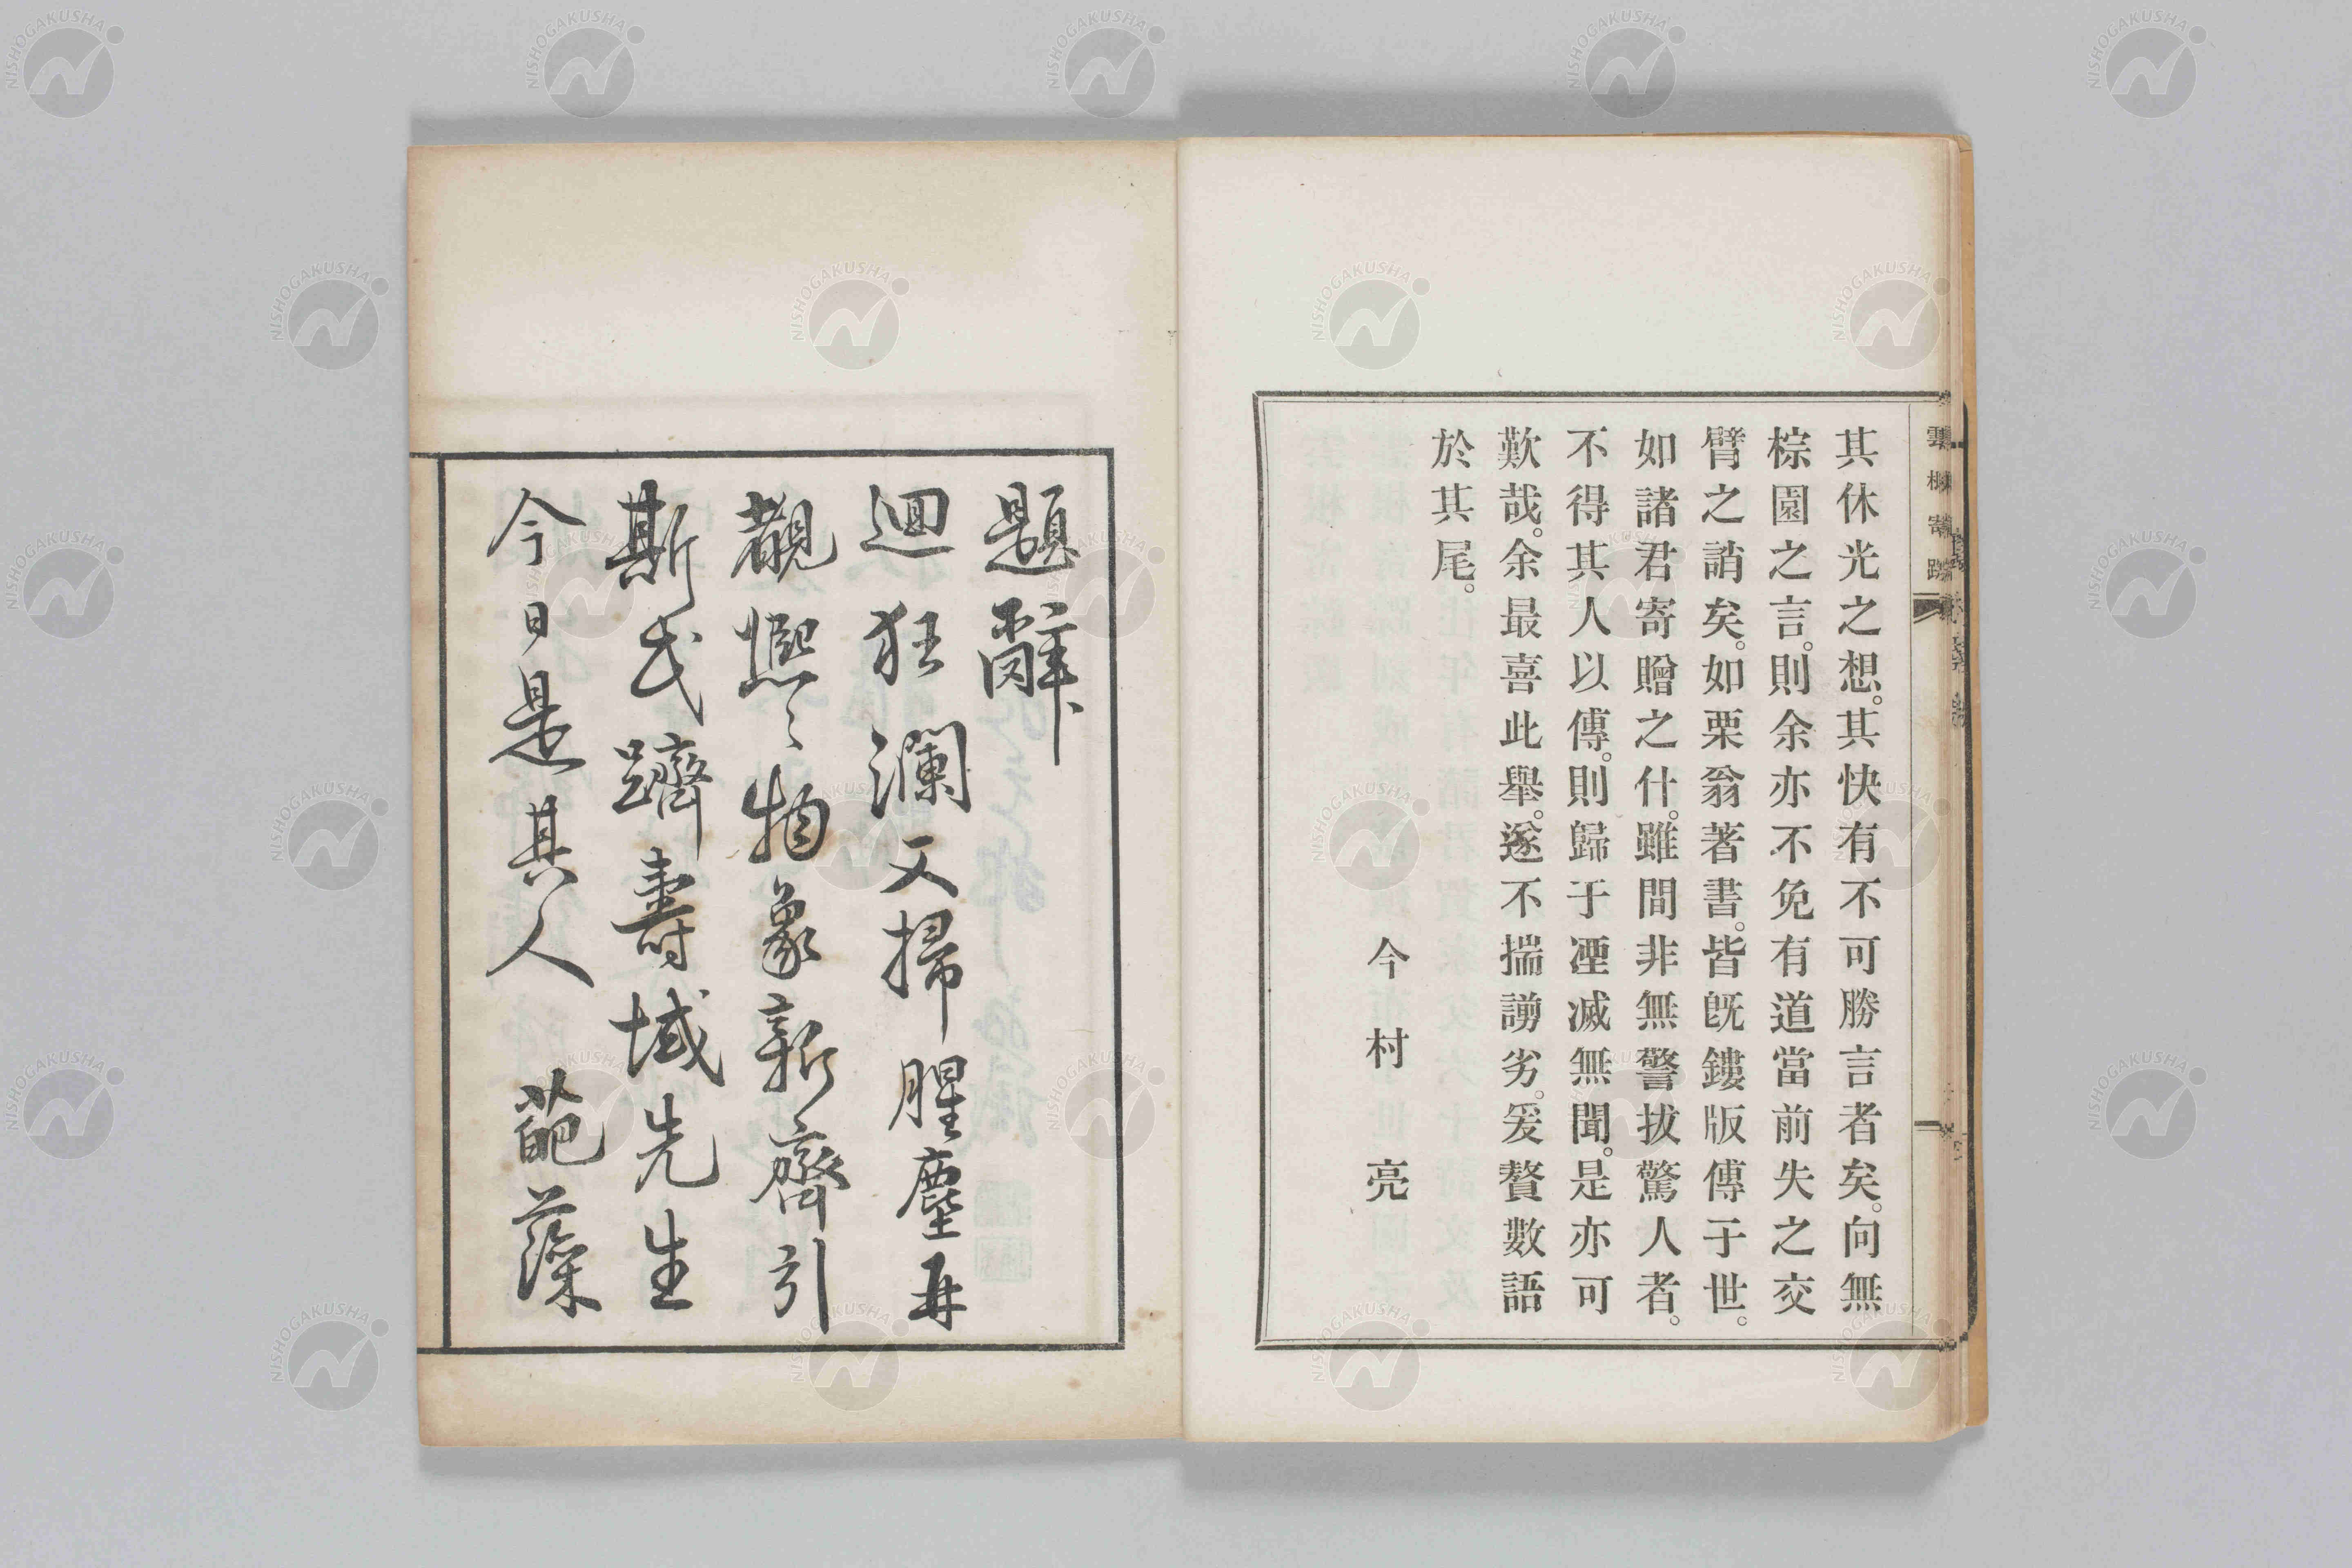 其休光之想。其快有不可勝言者矣。向無
棕園之言。則余亦不免有道當前失之交
臂之誚矣。如栗翁著書。皆既鏤版傳于世。
如諸君寄贈之什。雖間非無警拔驚人者。
不得其人以傳。則歸于湮滅無聞。是亦可
歎哉。余最喜此舉。遂不揣謭劣。爰贅數語
於其尾。
今村亮
題辭
迴狂瀾又掃腥塵再
覩熙〻物象新齊引
斯民躋壽域先生
今日是其人 葩藻
NISHOGAKUSHA